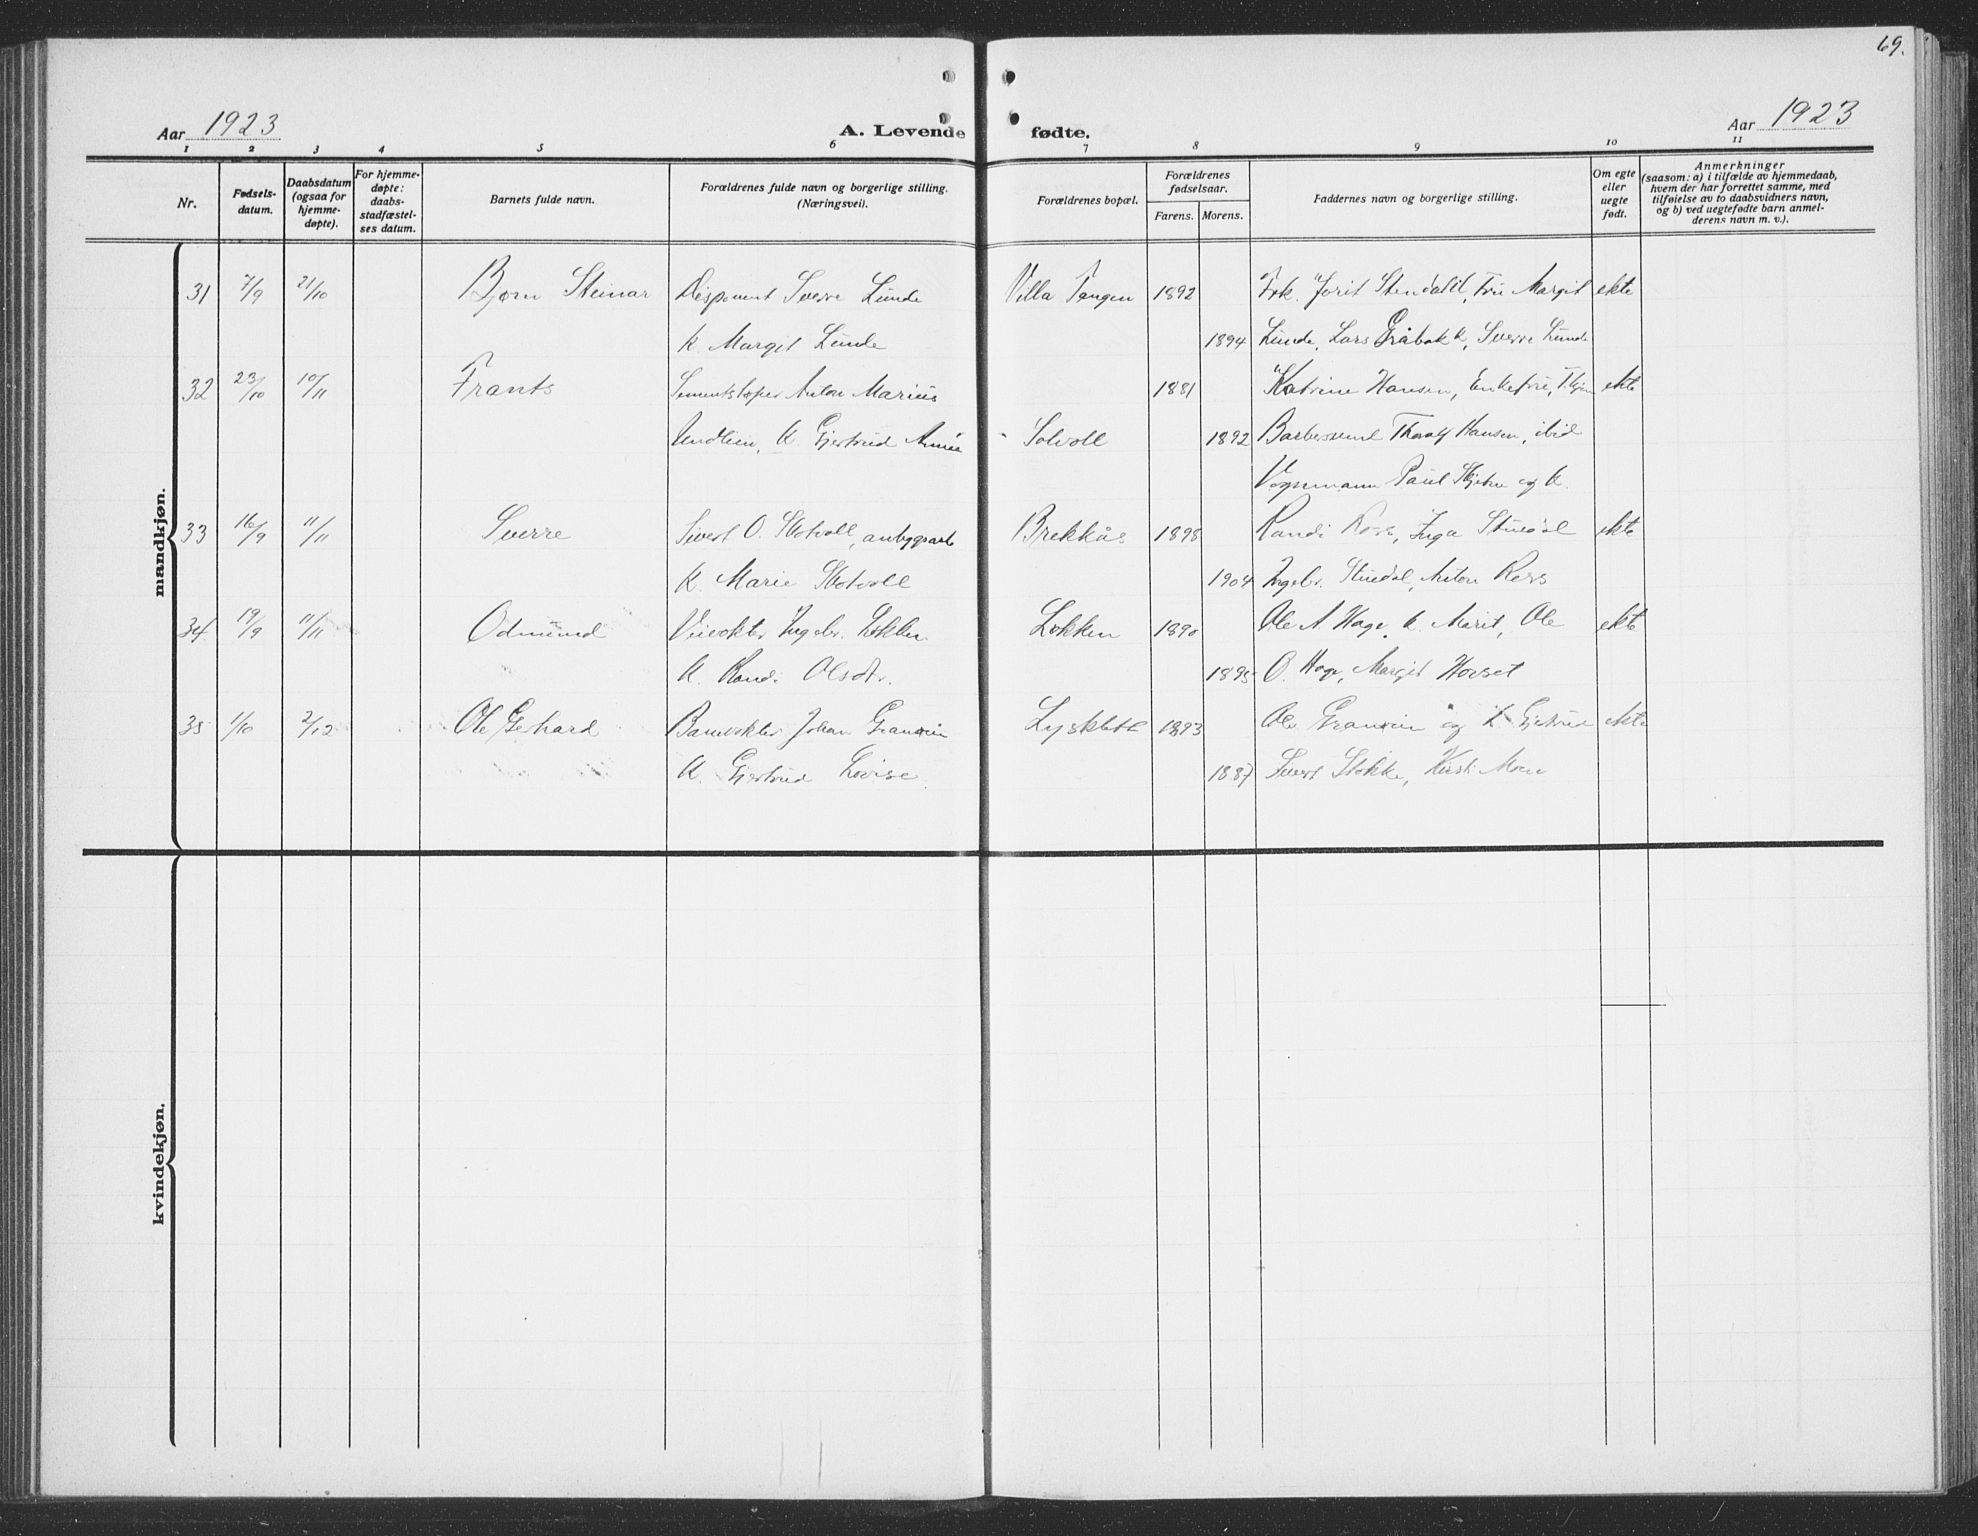 69.
Aar 1923 A. Levende fødte. Aar 1923
1 2 3 4 5 6 7 8 9 10 11
Nr. Fødsels-datum. Daabsdatum (ogsaa for hjemme-døpte). For hjemme-døpte: daabs-stadfæstel-ses datum. Barnets fulde navn. Forældrenes fulde navn og borgerlige stilling. (Næringsvei). Forældrenes bopæl. Forældrenes fødselsaar. Farens. Morens. Faddernes navn og borgerlige stilling. Om egte eller uegte født. Anmerkninger (saasom: a) i tilfælde av hjemmedaab, hvem der har forrettet samme, med tilføielse av to daabsvidners navn, og b) ved uegtefødte barn anmel-derens navn m. v.).
mandkjøn.
31 7/9 21/10 Bjørn Steinar Disponent Sverre Lunde Villa Tangen 1892 Frk. Jorit Stendahl, Fru Margit ekte
K. Margit Lunde 1894 Lunde, Lars Gråbakk, Sverre Lunde
32 23/10 10/11 Frants Sementstøper Anton Marius 1881 Katrine Hansen, Enkefru, ekte
K. Gjertrud Solvoll 1892 Hansen, ibid
Vognmann Paul og K.
33 16/9 11/11 Sverre Sivert O. Brekkås 1898 Randi Inga Stuedal ekte
K. Marie 1904 Ingebr. Stuedal, Anton
34 19/9 11/11 Odmund Ingebr. Løkken Løkken 1890 Ole A. Hage, K. Marit, Ole ekte
K. Randi Olsdtr. 1895 O. Hage, Margit
35 1/10 2/12 Ole Gerhard Banevokter Johan 1893 Ole og K. Gjertrud ekte
K. Gjertrud Lovise 1887 Sivert Stokke, Kirsti Moen
kvindekjøn.